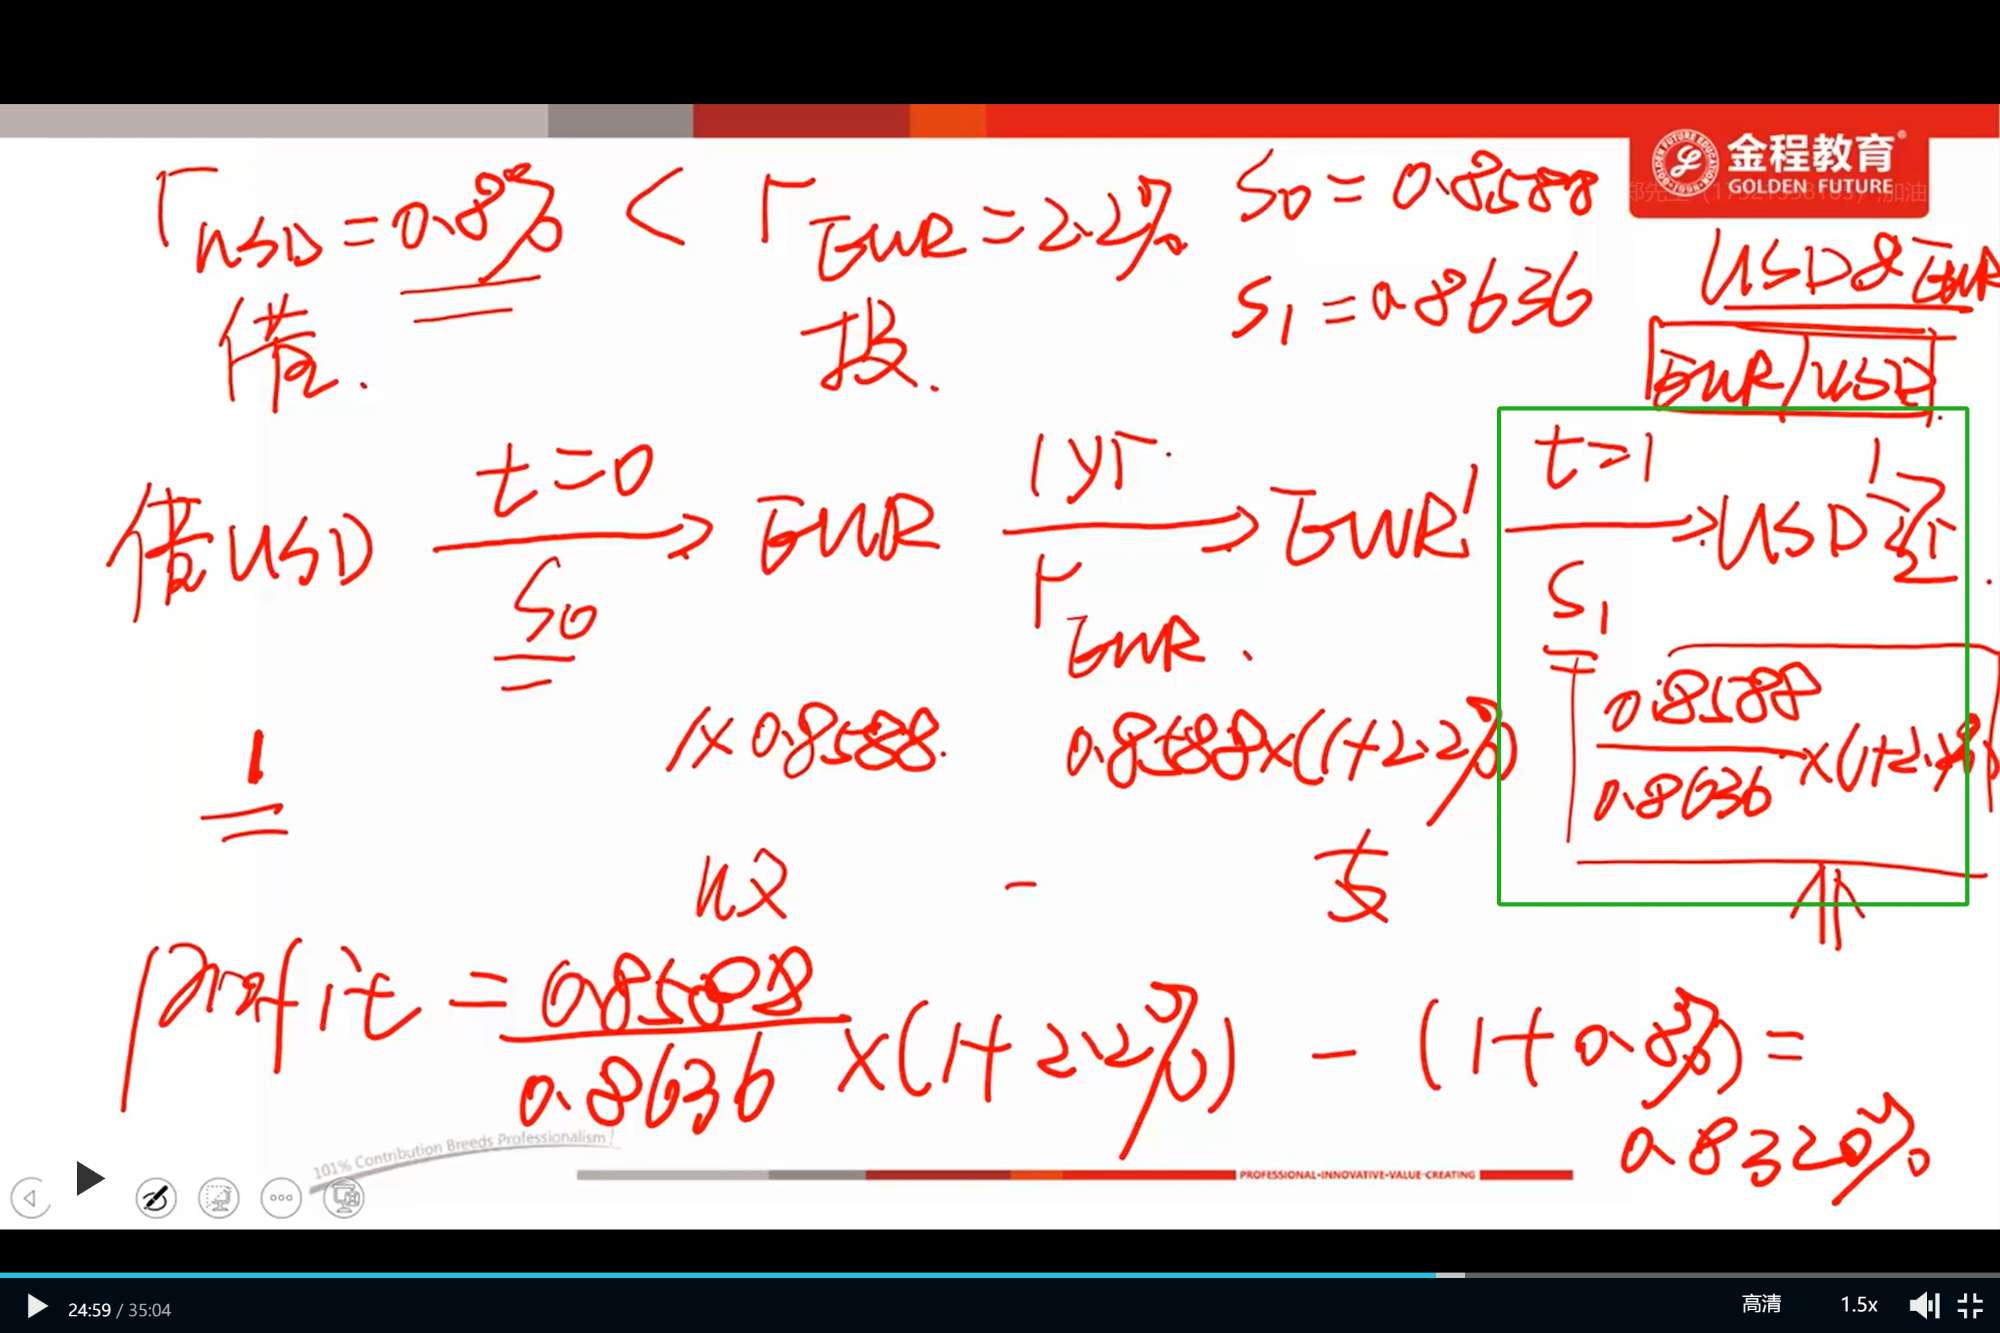 金程教育
GOLDEN FUTURE
r USD = 0.8% < r EUR = 2.2% S0 = 0.8588
S1 = 0.8636
USD & EUR
EUR/USD
借. 投.
借USD t=0 S0 → EUR 1yr. r EUR. → EUR' t=1 S1 → USD'
1 1×0.8588. 0.8588×(1+2.2%) 0.8588/0.8636 ×(1+2.2%)
收 - 支
profit = 0.8588/0.8636 ×(1+2.2%) - (1+0.8%) =
0.8320%
101% Contribution Breeds Professionalism
PROFESSIONAL·INNOVATIVE·VALUE-CREATING
24:59 / 35:04 高清 1.5x